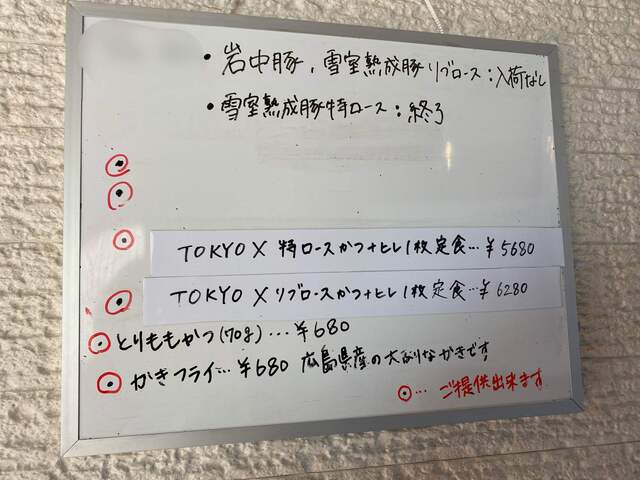 ・岩中豚、雪室熟成豚リブロース：入荷なし
・雪室熟成豚特ロース：終了
TOKYO X 特ロースかつ+ヒレ1枚定食…¥5680
TOKYO X リブロースかつ+ヒレ1枚定食…¥6280
とりももかつ(70g)…¥680
かきフライ…¥680 広島県産の大ぶりなかきです
⦿…ご提供出来ます